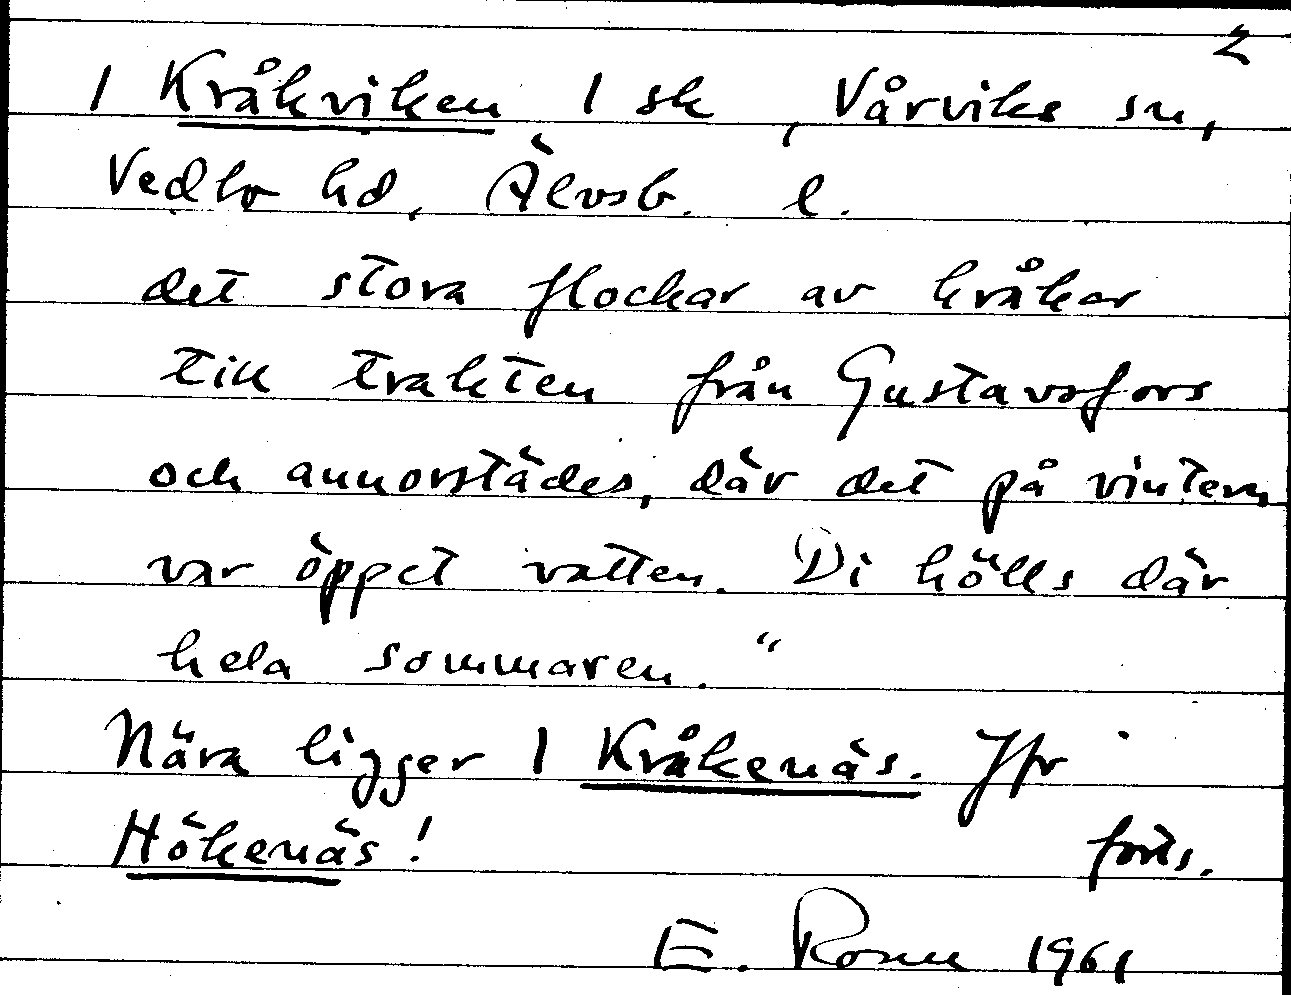 2
1 Kråkviken 1 sk, Vårviks sn,
Vedbo hd, Älvsb. l.
det stora flockar av kråkor
till trakten från Gustavsfors
och annorstädes, där det på vintern
var öppet vatten. Di hölls där
hela sommaren."
Nära ligger 1 Kråkenäs. Jfr
Hökenäs!
forts.
E. Rosell 1961